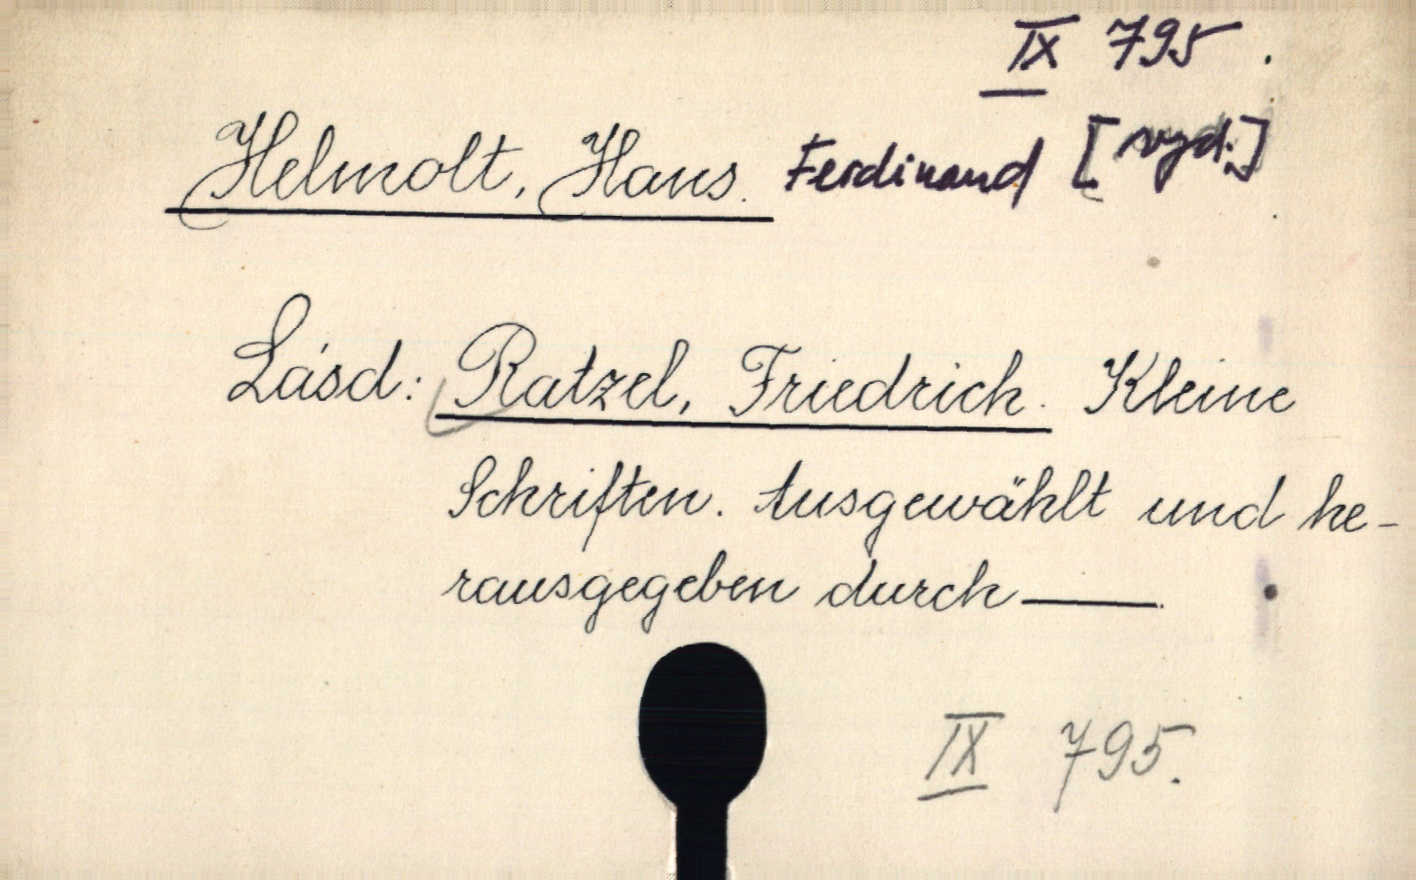 IX 795.
Helmolt, Hans. Ferdinand
Lásd: Ratzel, Friedrich. Kleine
Schriften. Ausgewählt und he-
rausgegeben durch ——.
IX 795.